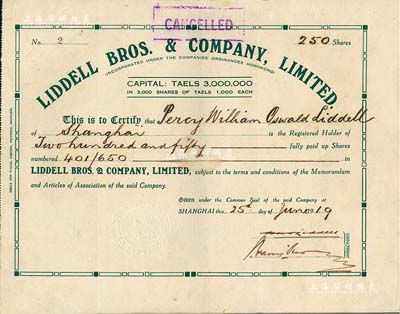 CANCELLED
No. 2
250 Shares
LIDDELL BROS. & COMPANY, LIMITED
(INCORPORATED UNDER THE COMPANIES' ORDINANCES HONGKONG)
CAPITAL: TAELS 3,000,000
IN 3,000 SHARES OF TAELS 1,000 EACH
This is to Certify that Percy William Oswald Liddell
of Shanghai is the Registered Holder of
Two hundred and fifty fully paid up Shares
numbered 401/650 in
LIDDELL BROS. & COMPANY, LIMITED, subject to the terms and conditions of the Memorandum
and Articles of Association of the said Company.
Given under the Common Seal of the said Company at
SHANGHAI this 25th day of June 1919
DIRECTORS